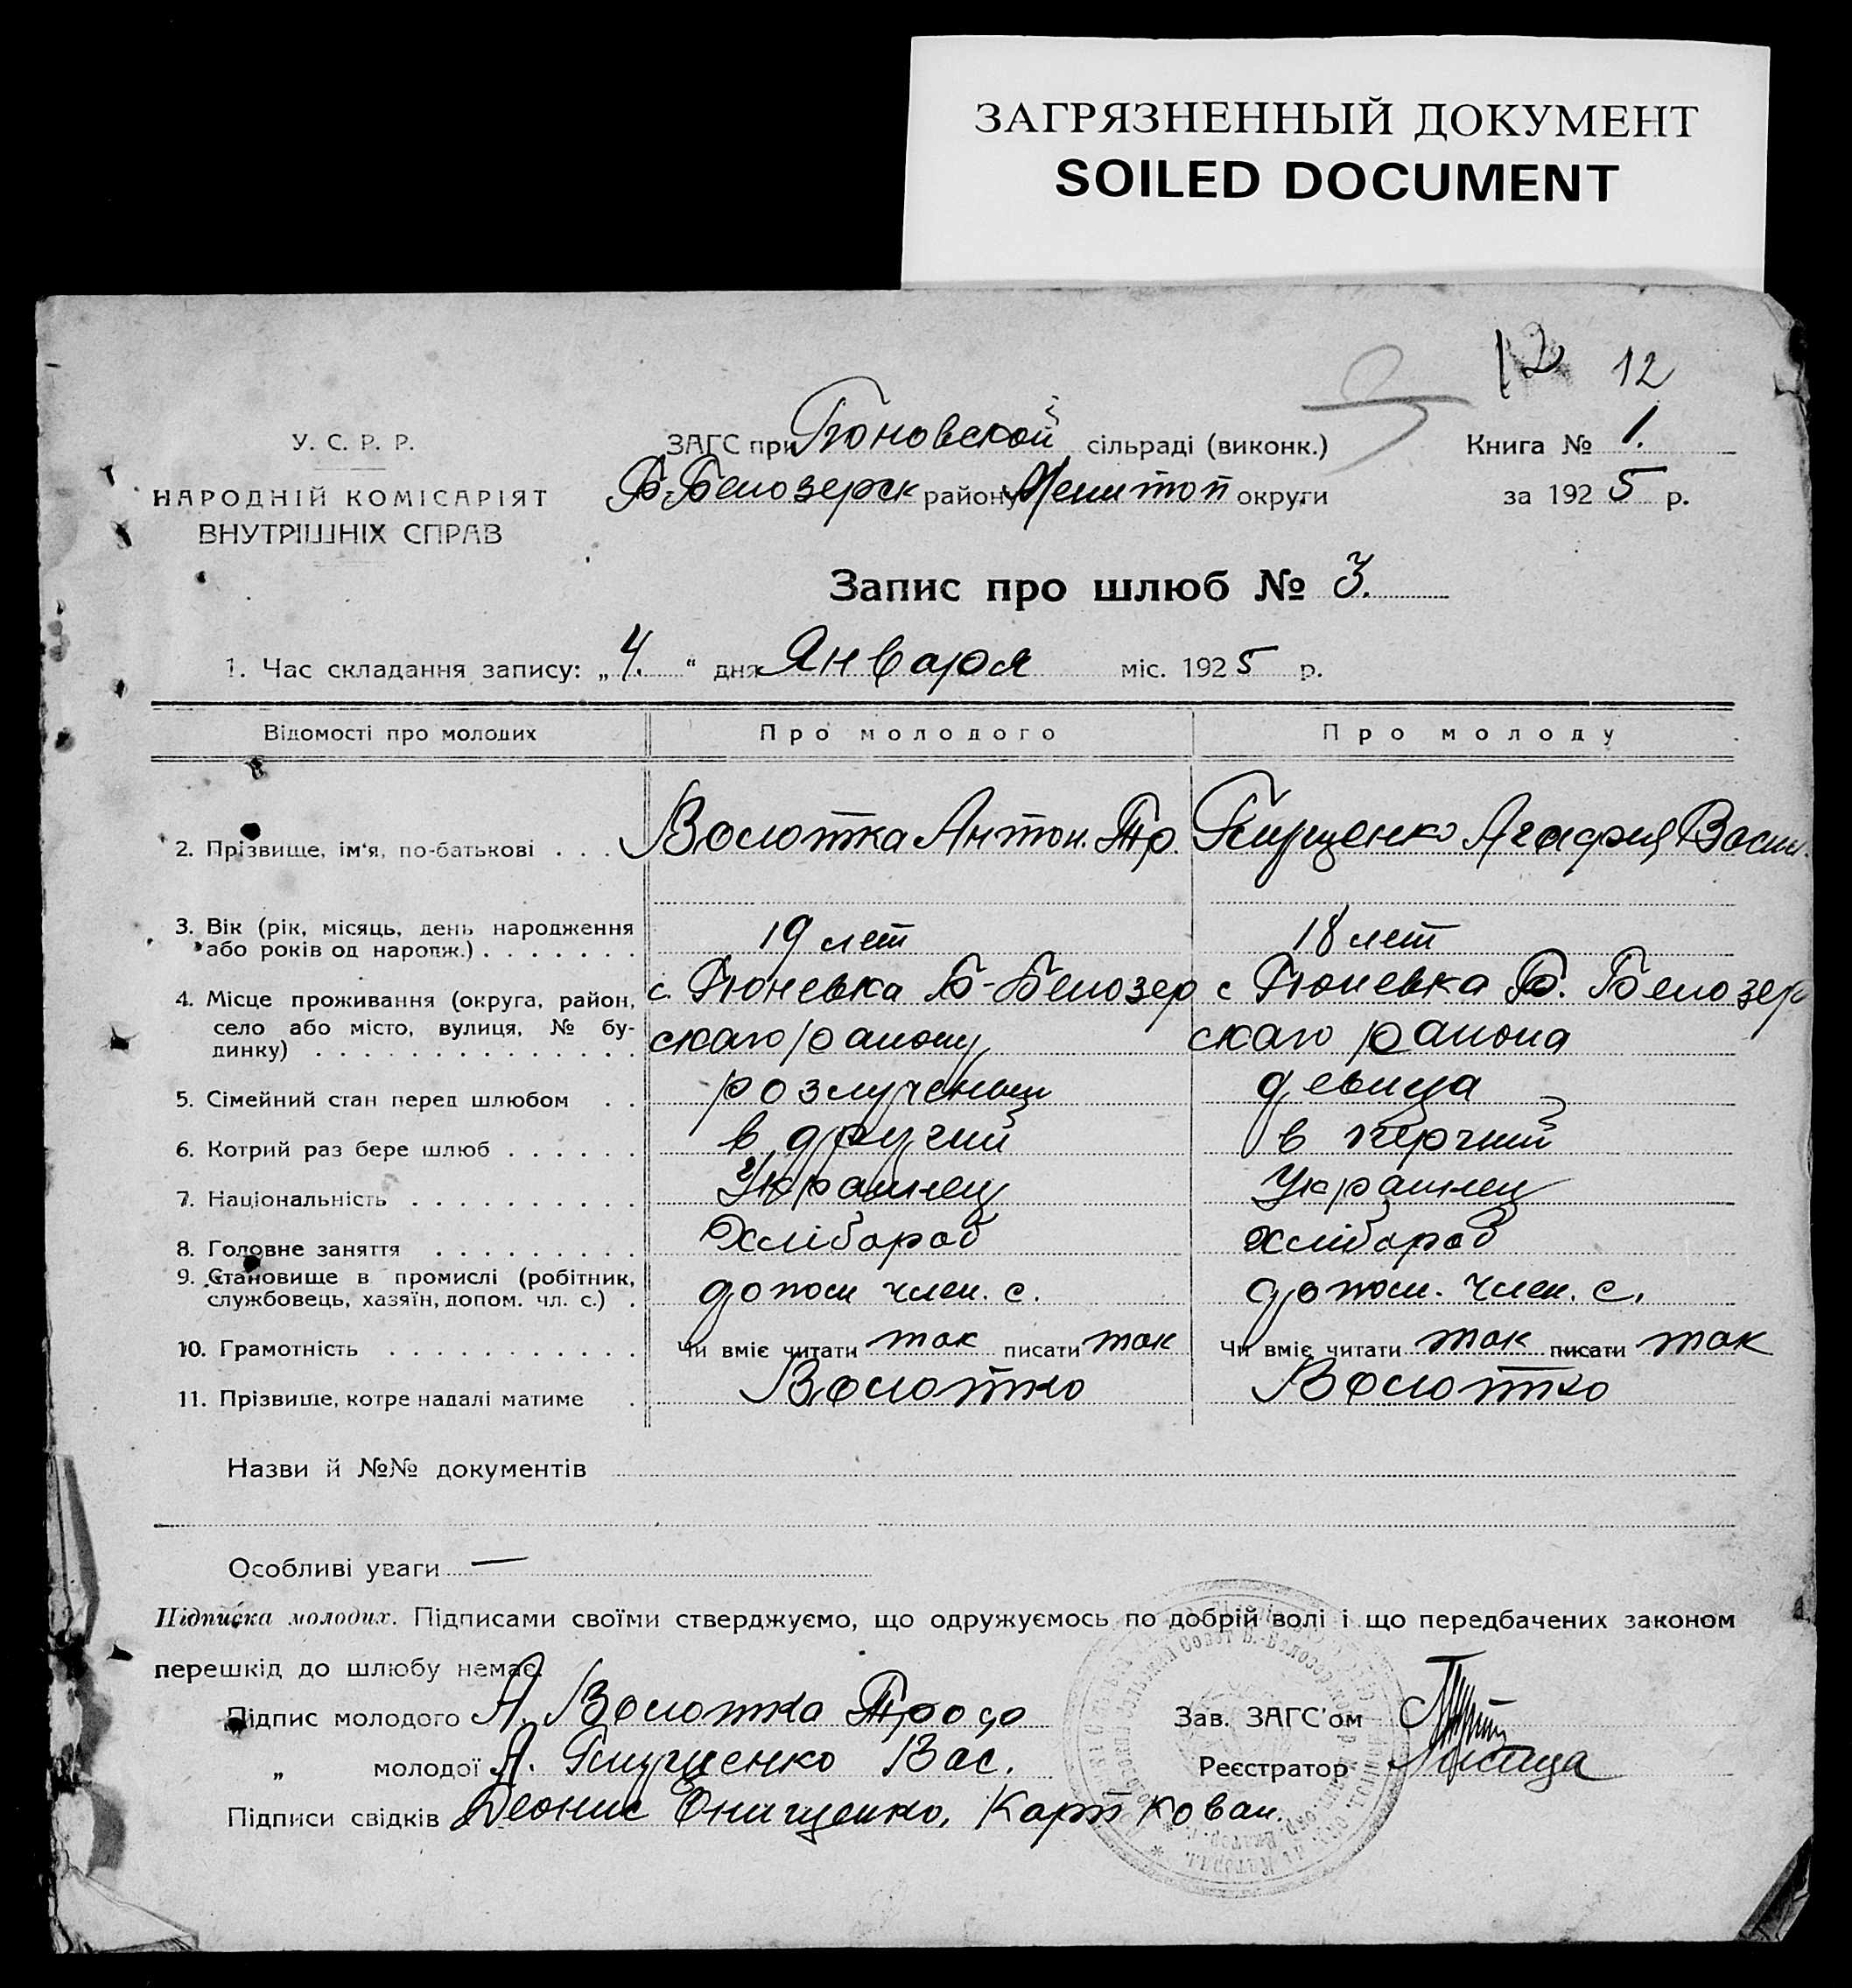 ЗАГРЯЗНЕННЫЙ ДОКУМЕНТ
SOILED DOCUMENT
12 12
У. С. Р. Р. ЗАГС при сільраді (виконк.) Книга № 1.
НАРОДНІЙ КОМІСАРІЯТ Б-Белозерск району Мелитоп округи за 1925 р.
ВНУТРІШНІХ СПРАВ
Запис про шлюб № 3.
1. Час складання запису: „4.“ дня Января міс. 1925 р.
Відомості про молодих Про молодого Про молоду
2. Прізвище, ім'я, по-батькові . . . Волотка Антон. Тр. Агафия Васил.
3. Вік (рік, місяць, день народження
або років од народж.) . . . . . . . 19 лет 18 лет
4. Місце проживання (округа, район, с. Б-Белозер с Б. Белозер
село або місто, вулиця, № бу- скаго району скаго района
динку) . . . . . . . . . . . . . .
5. Сімейний стан перед шлюбом . . розлучений девица
6. Котрий раз бере шлюб . . . . . . в другий в перчий
7. Національність . . . . . . . . . . Украинец Украинец
8. Головне заняття . . . . . . . . . Хлібороб хлібороб
9. Становище в промислі (робітник,
службовець, хазяїн, допом. чл. с.) . допом член. с. допом. член. с.
10. Грамотність . . . . . . . . . . . Чи вміє читати так писати так Чи вміє читати так писати так
11. Прізвище, котре надалі матиме . Волотко Волотко
Назви й №№ документів
Особливі уваги —
Підписка молодих. Підписами своїми стверджуємо, що одружуємось по добрій волі і що передбачених законом
перешкід до шлюбу немає.
Підпис молодого А. Волотка Зав. ЗАГС'ом
„ молодої А. Вас. Реєстратор
Підписи свідків Онищенко, Карп Ковал.